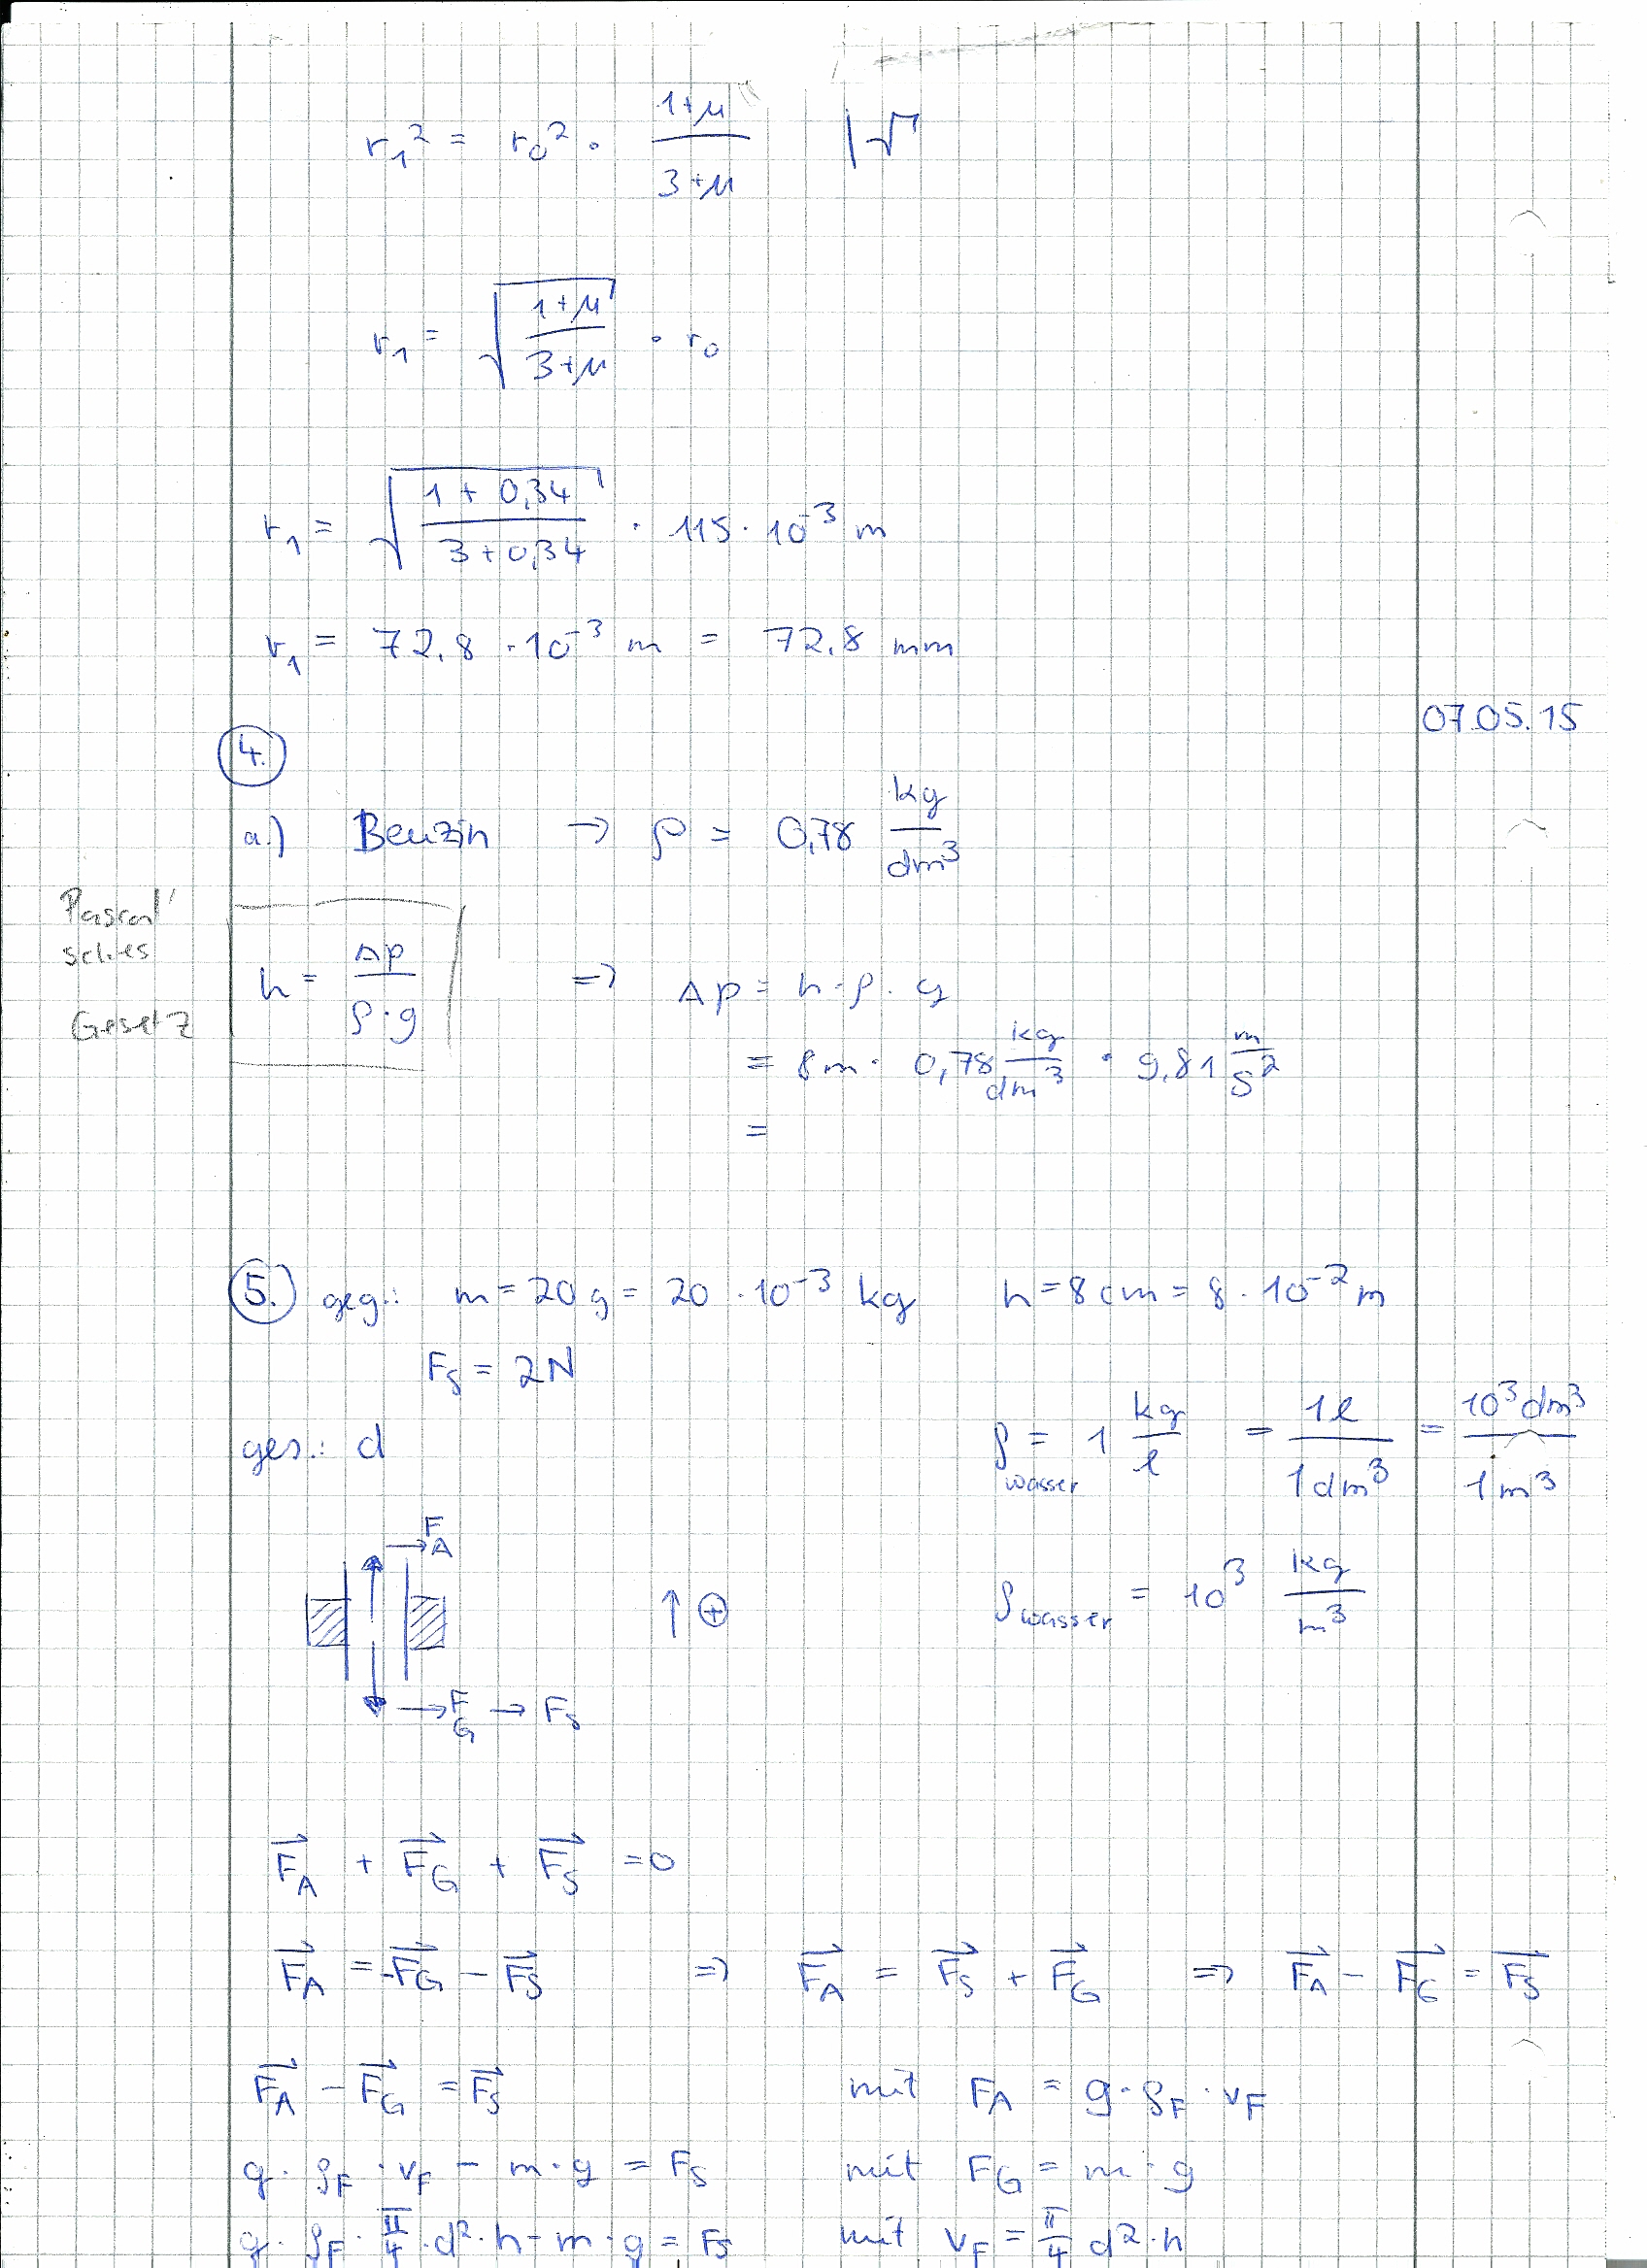 r₁² = r₀² · (1+μ)/(3+μ) |√
r₁ = √((1+μ)/(3+μ)) · r₀
r₁ = √((1+0,34)/(3+0,34)) · 115 · 10⁻³ m
r₁ = 72,8 · 10⁻³ m = 72,8 mm
07.05.15
4.
a.) Benzin → ρ = 0,78 kg/dm³
Pascal'
sches
Gesetz
h = Δp/(ρ·g) ⇒ Δp = h·ρ·g
= 8m · 0,78 kg/dm³ · 9,81 m/s²
=
5. geg.: m = 20g = 20 · 10⁻³ kg h = 8cm = 8 · 10⁻² m
F_S = 2N
ges.: d
ρ_wasser = 1 kg/l = 1l/1dm³ = 10³dm³/1m³
→F_A
↑ ⊕
ρ_wasser = 10³ kg/m³
→F_G → F_S
F⃗_A + F⃗_G + F⃗_S = 0
F⃗_A = -F⃗_G - F⃗_S ⇒ F⃗_A = F⃗_S + F⃗_G ⇒ F⃗_A - F⃗_G = F⃗_S
F⃗_A - F⃗_G = F⃗_S mit F_A = g·ρ_F·v_F
g·ρ_F·v_F - m·g = F_S mit F_G = m·g
g·ρ_F·π/4·d²·h - m·g = F_S mit v_F = π/4 d²·h